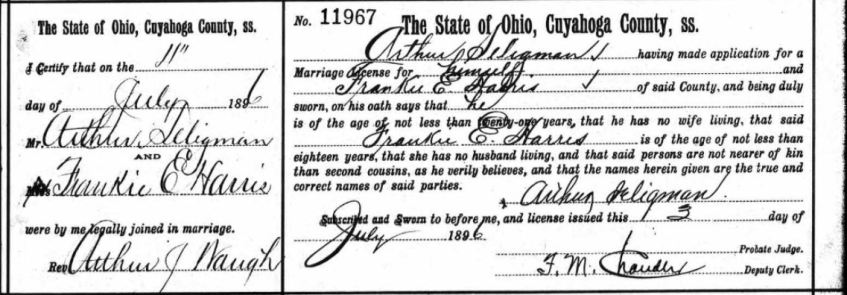 The State of Ohio, Cuyahoga County, ss.
I Certify that on the 11"
day of July 1896
Mr Arthur Seligman
AND
Frankie E Harris
were by me legally joined in marriage.
Rev Arthur J Waugh
No. 11967 The State of Ohio, Cuyahoga County, ss.
Arthur Seligman having made application for a
Marriage License for himself and
Frankie E. Harris of said County, and being duly
sworn, on his oath says that he
is of the age of not less than twenty-one years, that he has no wife living, that said
Frankie E. Harris is of the age of not less than
eighteen years, that she has no husband living, and that said persons are not nearer of kin
than second cousins, as he verily believes, and that the names herein given are the true and
correct names of said parties.
Arthur Seligman.
Subscribed and Sworn to before me, and license issued this 3 day of
July 1896
Probate Judge.
F. M. Deputy Clerk.